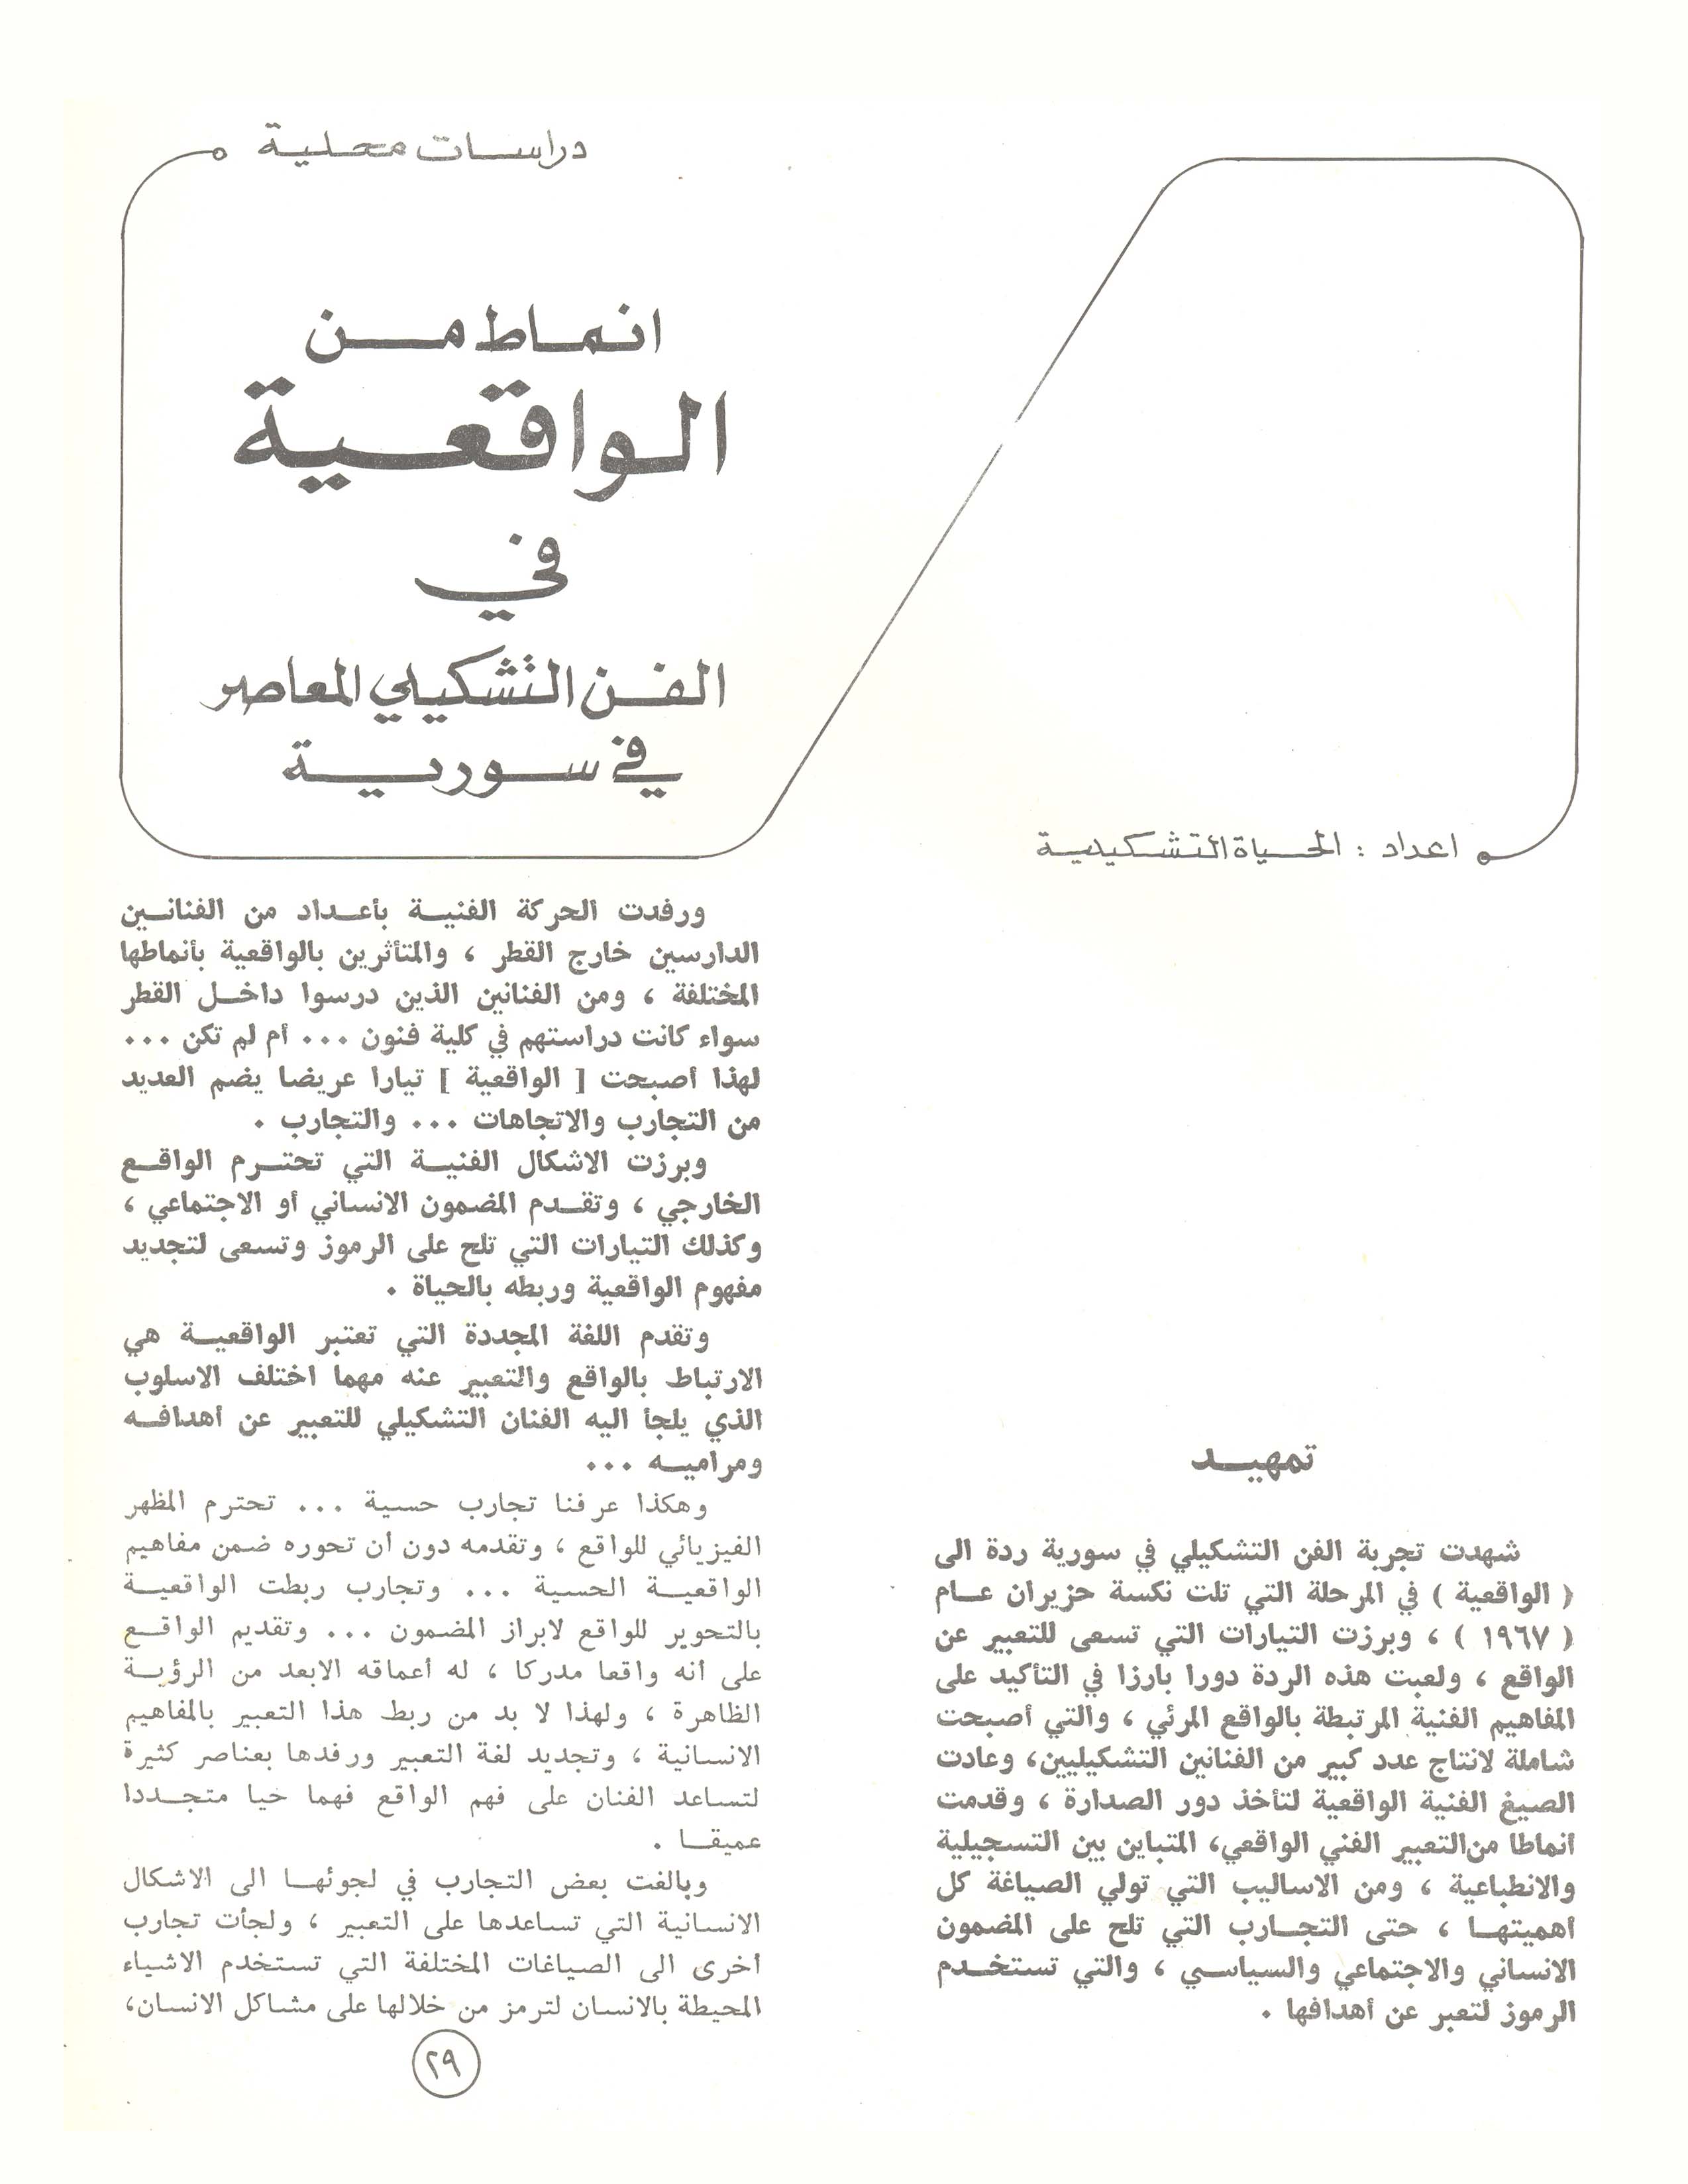 دراسات محلية
انماط من
الواقعية
في
الفن التشكيلي المعاصر
في سورية
اعداد : الحياة التشكيلية
تمهيد
شهدت تجربة الفن التشكيلي في سورية ردة الى
( الواقعية ) في المرحلة التي تلت نكسة حزيران عام
( ١٩٦٧ ) ، وبرزت التيارات التي تسعى للتعبير عن
الواقع ، ولعبت هذه الردة دورا بارزا في التأكيد على
المفاهيم الفنية المرتبطة بالواقع المرئي ، والتي أصبحت
شاملة لانتاج عدد كبير من الفنانين التشكيليين، وعادت
الصيغ الفنية الواقعية لتأخذ دور الصدارة ، وقدمت
انماطا من التعبير الفني الواقعي، المتباين بين التسجيلية
والانطباعية ، ومن الاساليب التي تولي الصياغة كل
اهميتها ، حتى التجارب التي تلح على المضمون
الانساني والاجتماعي والسياسي ، والتي تستخدم
الرموز لتعبر عن أهدافها .
ورفدت الحركة الفنية بأعداد من الفنانين
الدارسين خارج القطر ، والمتأثرين بالواقعية بأنماطها
المختلفة ، ومن الفنانين الذين درسوا داخل القطر
سواء كانت دراستهم في كلية فنون ... أم لم تكن ...
لهذا أصبحت [ الواقعية ] تيارا عريضا يضم العديد
من التجارب والاتجاهات ... والتجارب .
وبرزت الاشكال الفنية التي تحترم الواقع
الخارجي ، وتقدم المضمون الانساني أو الاجتماعي ،
وكذلك التيارات التي تلح على الرموز وتسعى لتجديد
مفهوم الواقعية وربطه بالحياة .
وتقدم اللغة المجددة التي تعتبر الواقعية هي
الارتباط بالواقع والتعبير عنه مهما اختلف الاسلوب
الذي يلجأ اليه الفنان التشكيلي للتعبير عن أهدافه
ومراميه ...
وهكذا عرفنا تجارب حسية ... تحترم المظهر
الفيزيائي للواقع ، وتقدمه دون ان تحوره ضمن مفاهيم
الواقعية الحسية ... وتجارب ربطت الواقعية
بالتحوير للواقع لابراز المضمون ... وتقديم الواقع
على أنه واقعا مدركا ، له أعماقه الابعد من الرؤية
الظاهرة ، ولهذا لا بد من ربط هذا التعبير بالمفاهيم
الانسانية ، وتجديد لغة التعبير ورفدها بعناصر كثيرة
لتساعد الفنان على فهم الواقع فهما حيا متجددا
عميقا .
وبالغت بعض التجارب في لجوئها الى الاشكال
الانسانية التي تساعدها على التعبير ، ولجأت تجارب
أخرى الى الصياغات المختلفة التي تستخدم الاشياء
المحيطة بالانسان لترمز من خلالها على مشاكل الانسان،
٢٩